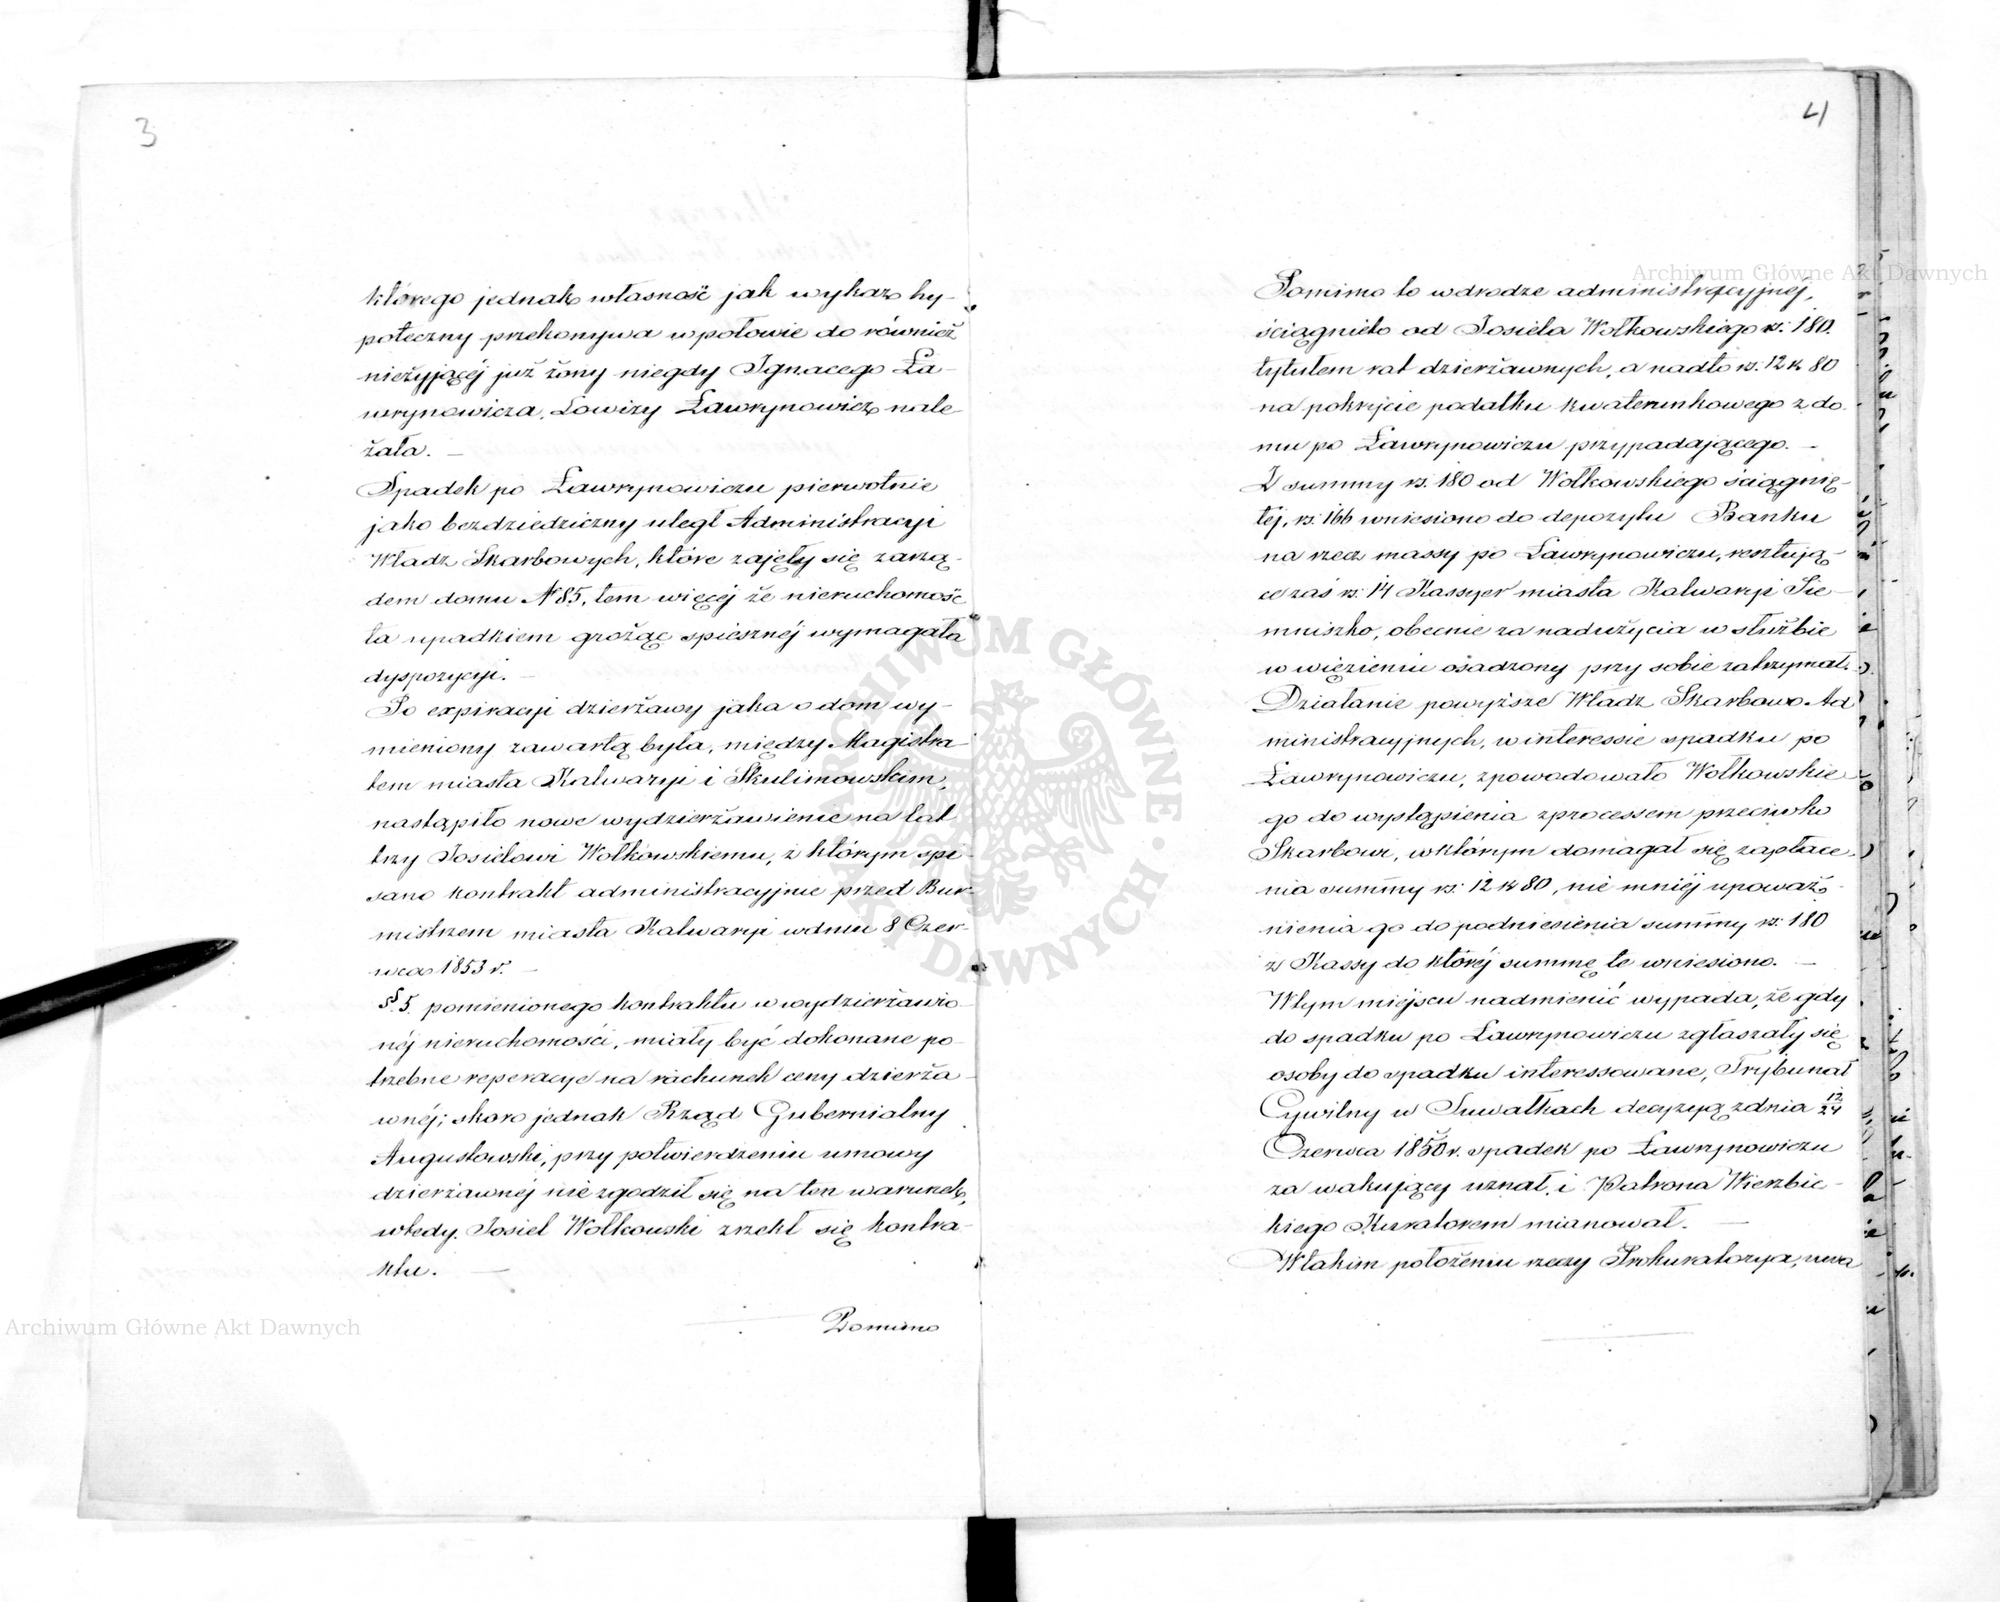 3
którego jednak własność jak wykaz hy-
poteczny przekonywa w połowie do również
nieżyjącéj już żony niegdy Ignacego Ła-
wrynowicza, Lowizy Ławrynowicz nale-
żała. —
Spadek po Ławrynowiczu pierwotnie
jako bezdziedziczny uległ Administracyi
Władz Skarbowych, które zajęły się zarzą-
dem domu N 85, tem więcéj że nieruchomość
ta upadkiem grożąc spiesznéj wymagała
dyspozycyi. —
Po expiracyi dzierżawy jaka o dom wy-
mieniony zawartą była, między Magistra-
tem miasta Kalwaryi i Skulimowskim,
nastąpiło nowe wydzierżawienie na lat
trzy Josielowi Wołkowskiemu, z którym spi-
sano kontrakt administracyjnie przed Bur-
mistrzem miasta Kalwaryi w dniu 8 Czer-
wca 1853 r. —
§ 5. pomienionego kontraktu w wydzierżawio-
néj nieruchomości, miały być dokonane po-
trzebne reperacye na rachunek ceny dzierża-
wnéj; skoro jednak Rząd Gubernialny
Augustowski, przy potwierdzeniu umowy
dzierżawnéj nie zgodził się na ten warunek,
wtedy Josiel Wołkowski zrzekł się kontra-
ktu. —
Pomimo
4
Pomimo to w drodze administracyjnéj,
ściągnięto od Josiela Wołkowskiego rs: 180.
tytułem rat dzierżawnych, a nadto rs: 12 k 80
na pokrycie podatku kwaterunkowego z do-
mu po Ławrynowiczu przypadającego. —
Z summy rs: 180 od Wołkowskiego ściągnię-
téj, rs: 166 wniesiono do depozytu Banku
na rzecz massy po Ławrynowiczu, resztują-
ce zaś rs: 14 Kassyer miasta Kalwaryi Sie-
mniszko, obecnie za nadużycia w służbie
w więzieniu osadzony przy sobie zatrzymał.
Działanie powyższe Władz Skarbowo Ad
ministracyjnych, w interessie spadku po
Ławrynowiczu, spowodowało Wołkowskie-
go do wystąpienia z processem przeciwko
Skarbowi, w którym domagał się zapłace-
nia summy rs: 12 k 80, nie mniéj upoważ-
nienia go do podniesienia summy rs: 180
z Kassy do któréj summę tę wniesiono. —
W tym miejscu nadmienić wypada, że gdy
do spadku po Ławrynowiczu zgłaszały się
osoby do spadku interessowane, Trybunał
Cywilny w Suwałkach decyzyą z dnia 12/24
Czerwca 1850 r. spadek po Ławrynowiczu
za wakujący uznał, i Patrona Wierzbic-
kiego Kuratorem mianował. —
W takim położeniu rzeczy Prokuratorya, uwa
Archiwum Główne Akt Dawnych
Archiwum Główne Akt Dawnych
ARCHIWUM GŁÓWNE · AKT DAWNYCH ·